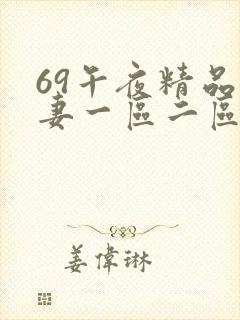 69午夜精品
妻一區二區
姜偉琳